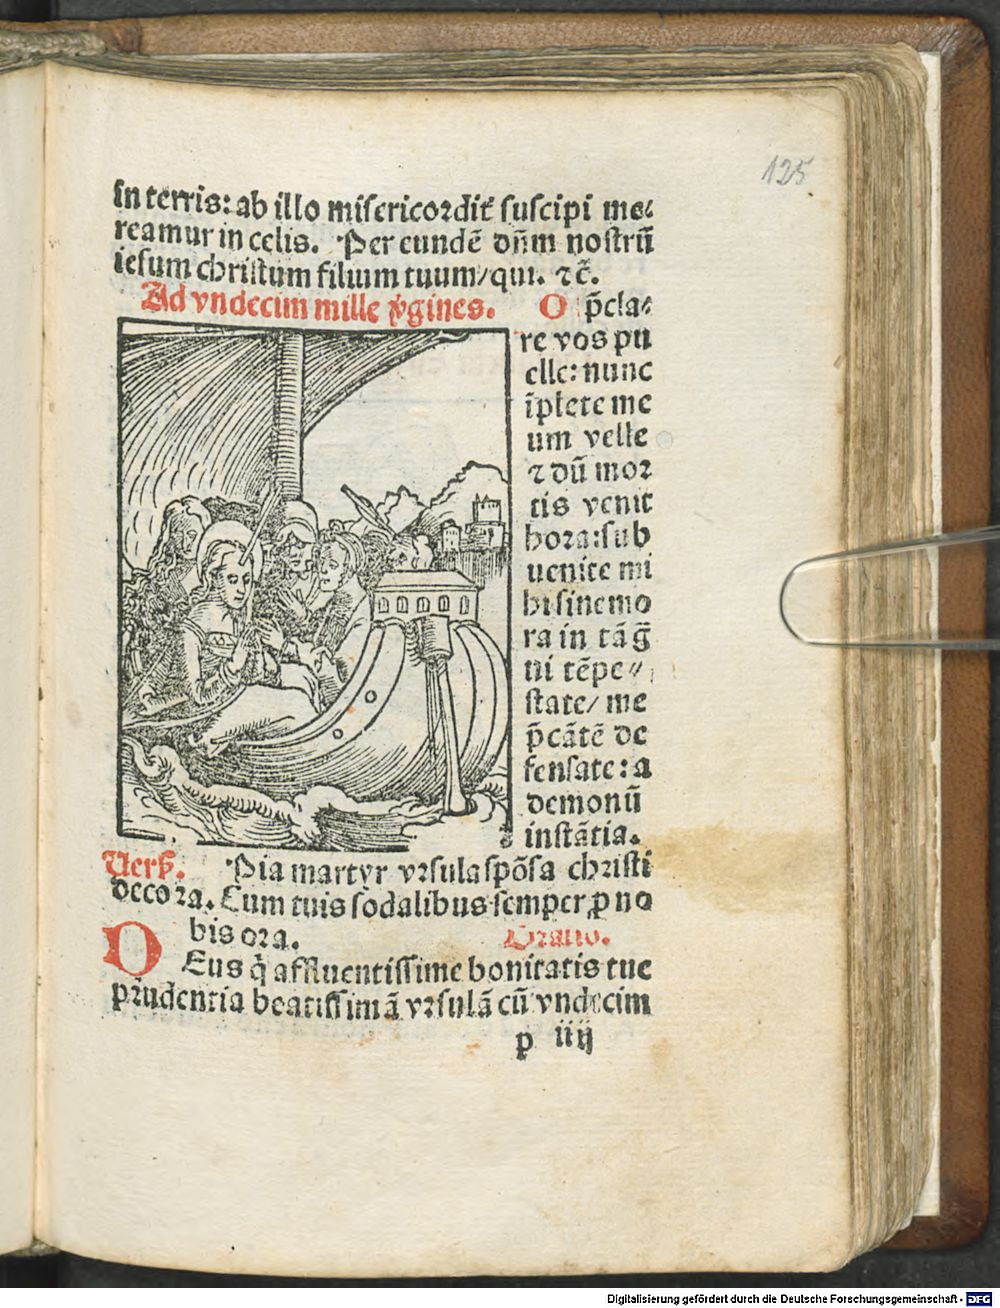 125
in terris: ab illo misericordit̃ suscipi me⸗
reamur in celis. Per eundē dñm nostrū
iesum christum filium tuum/qui. ⁊c̃.
Ad vndecim mille v̔gines. O p̄cla⸗
re vos pu
elle: nunc
īplete me
um velle
⁊ dū mor
tis venit
hora: sub
uenite mi
hi sine mo
ra in tā g̃
ni tēpe⸗
state/ me
p̄cātē de
fensate: a
demonū
instātia.
Vers̔. Pia martyr vrsula spōsa christi
decora. Cum tuis sodalibus semper ꝓ no
bis ora. Oratio.
DEus q̇ affluentissime bonitatis tue
prudentia beatissimā vrsulā cū vndecim
p iiij
Digitalisierung gefördert durch die Deutsche Forschungsgemeinschaft - DFG